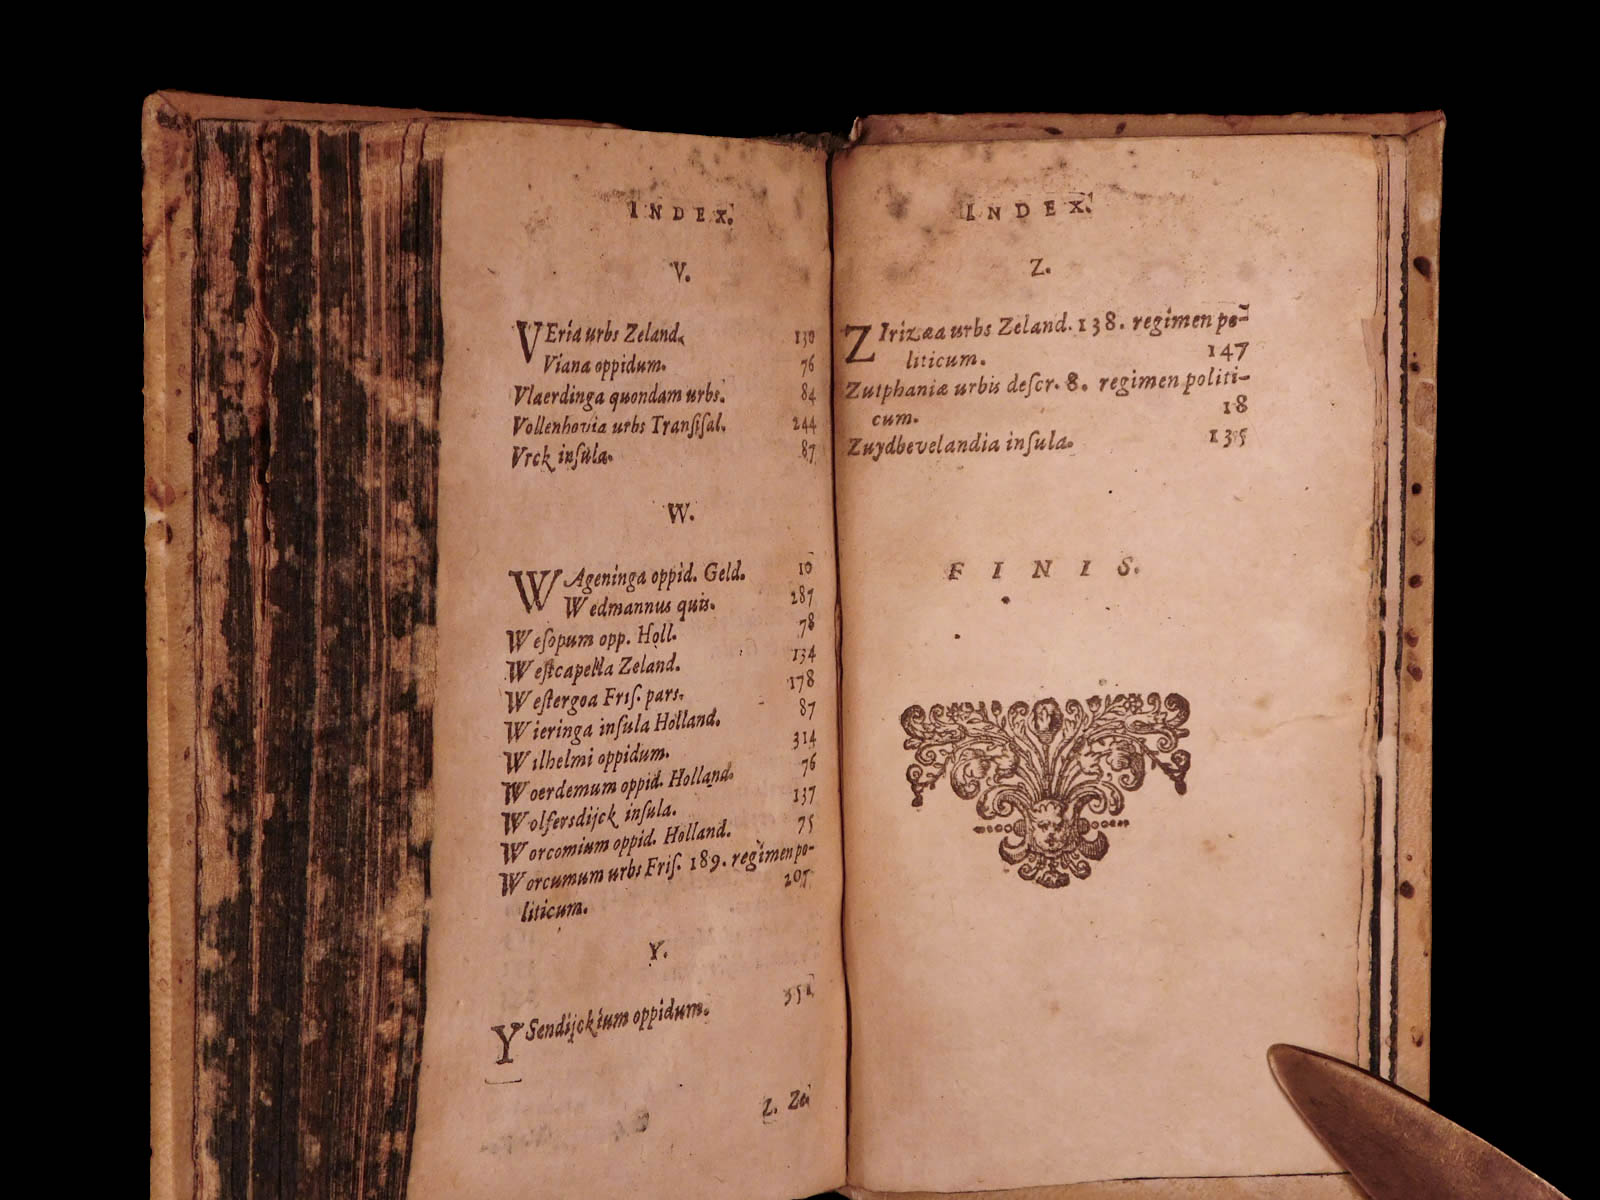 INDEX.
V.
VEria urbs Zeland. 130
Viana oppidum. 76
Vlaerdinga quondam urbs. 84
Vollenhovia urbs Transiſal. 244
Vrck inſula. 87
W.
WAgeninga oppid. Geld. 10
Wedmannus quis. 287
Weſopum opp. Holl. 78
Weſtcapella Zeland. 134
Weſtergoa Friſ. pars. 178
Wieringa inſula Holland. 87
Wilhelmi oppidum. 314
Woerdemum oppid. Holland. 76
Wolfersdijck inſula. 137
Worcomium oppid. Holland. 75
Worcumum urbs Friſ. 189. regimen po-
liticum. 207
Y.
YSendijckium oppidum. 351
Z.
INDEX.
Z.
ZIrizæa urbs Zeland. 138. regimen po-
liticum. 147
Zutphaniæ urbis deſcr. 8. regimen politi-
cum. 18
Zuydbevelandia inſula. 135
FINIS.